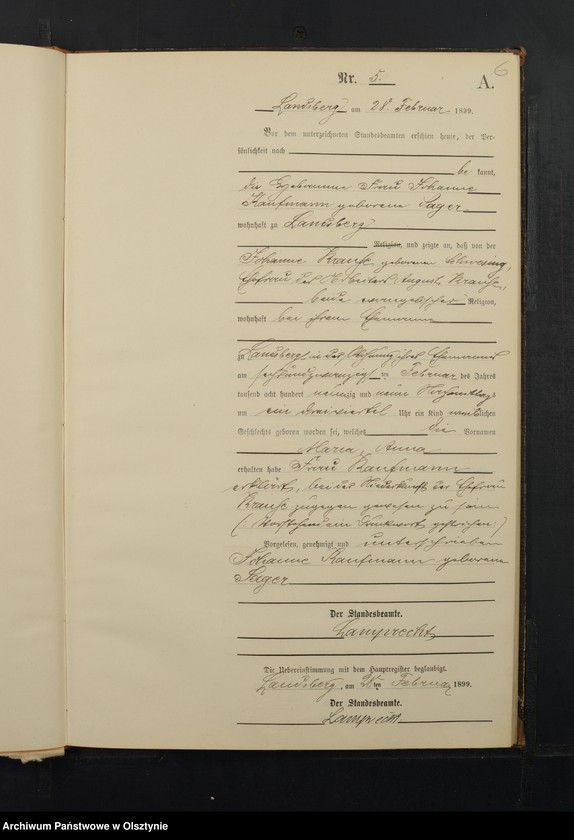 6
Nr. 5.
A.
Landsberg am 28. Februar 1899.
Vor dem unterzeichneten Standesbeamten erschien heute, der Per-
sönlichkeit nach
be kannt,
die Hebamme Frau Johanne
Kaufmann geborene Sager
wohnhaft zu Landsberg
Religion, und zeigte an, daß von der
Johanne Krause geborenen
Ehefrau des Arbeiters August Krause,
beide evangelischer Religion,
wohnhaft bei ihrem Ehemann
zu Landsberg in der Wohnung ihres Ehemanns
am sechsundzwanzigsten Februar des Jahres
tausend acht hundert neunzig und neun Nachmittags
um ein dreiviertel Uhr ein Kind weiblichen
Geschlechts geboren worden sei, welches die Vornamen
Maria, Anna
erhalten habe Frau Kaufmann
erklärt, bei der Niederkunft der Ehefrau
Krause zugegen gewesen zu sein
(Vorstehend ein Druckwort gestrichen.)
Vorgelesen, genehmigt und unterschrieben
Johanne Kaufmann geborene
Sager
Der Standesbeamte.
Lamprecht
Die Uebereinstimmung mit dem Hauptregister beglaubigt.
Landsberg, am 28ten Februar 1899.
Der Standesbeamte.
Lamprecht
Archiwum Państwowe w Olsztynie